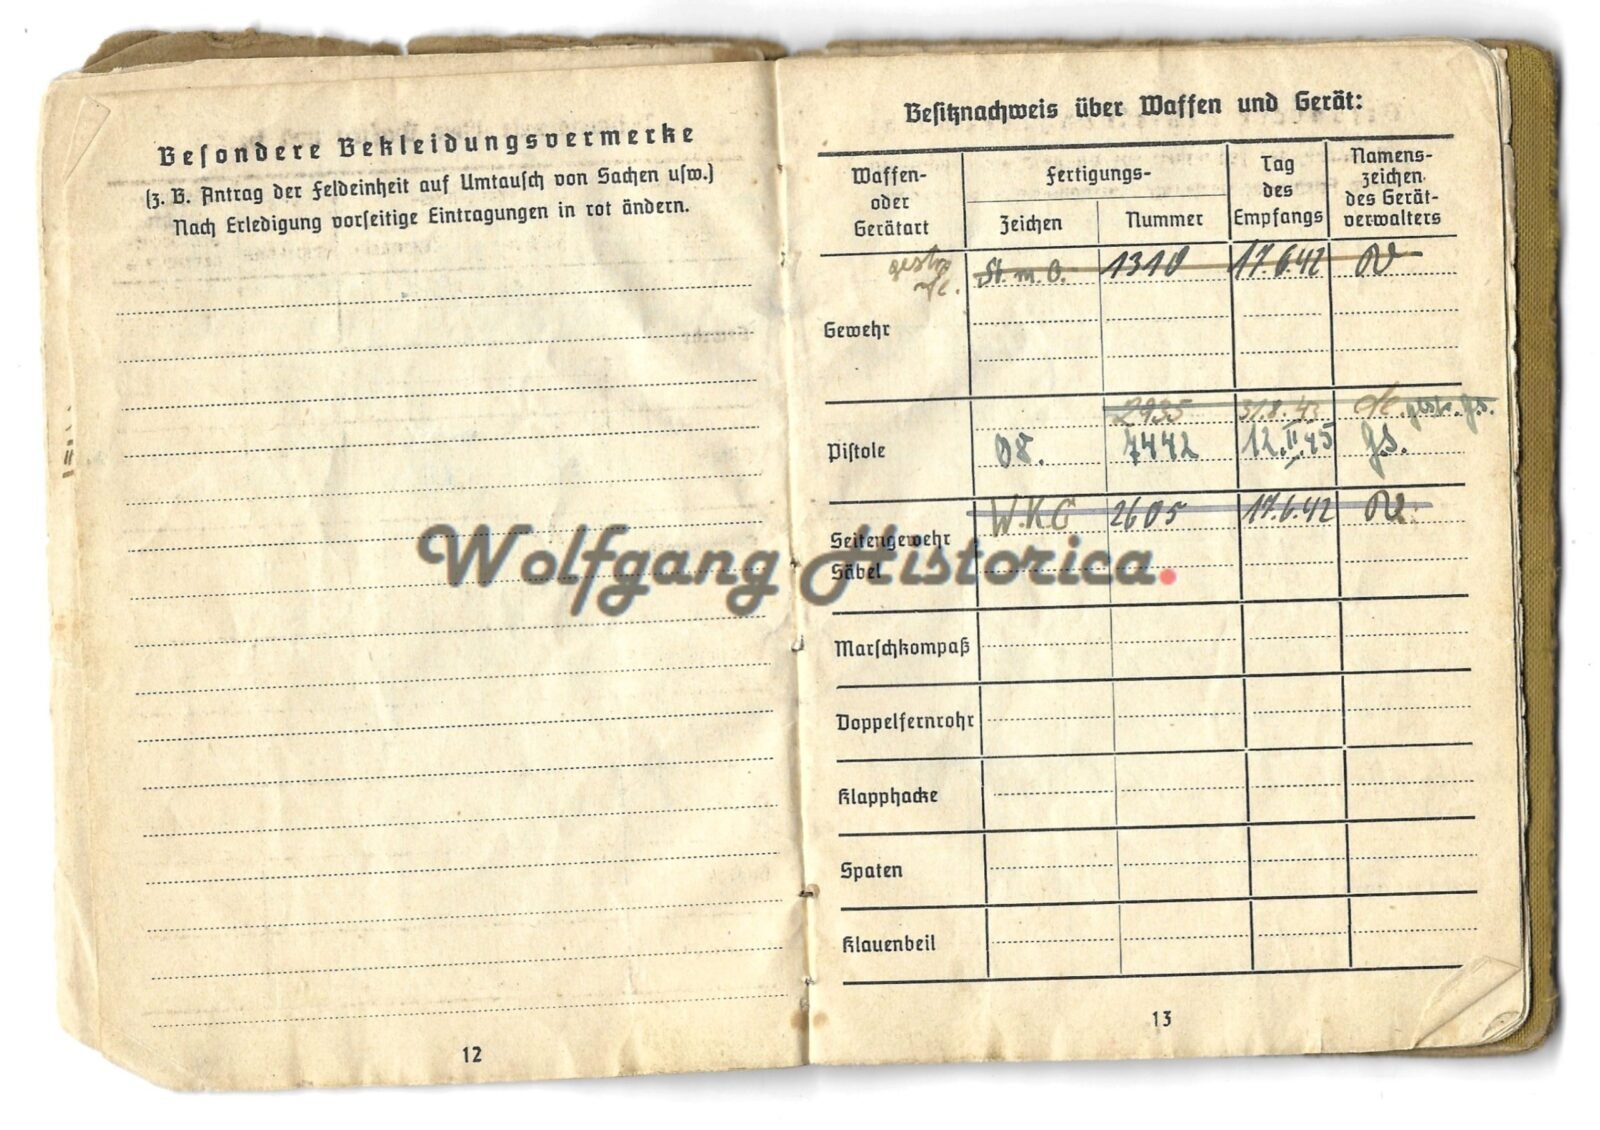 Besondere Bekleidungsvermerke
(z. B. Antrag der Feldeinheit auf Umtausch von Sachen usw.)
Nach Erledigung vorseitige Eintragungen in rot ändern.
12
Besitznachweis über Waffen und Gerät:
Waffen- oder Gerätart
Fertigungs-
Zeichen
Nummer
Tag des Empfangs
Namens- zeichen des Gerät- verwalters
gestr.
St. m. O. 1310 17.6.42
Gewehr
2935 31.8.43 gestr. gs.
Pistole 08. 7442 12.II.45 gs.
W.K.C 2605 17.6.42
Seitengewehr
Säbel
Marschkompaß
Doppelfernrohr
Klapphacke
Spaten
Klauenbeil
13
Wolfgang Historica.